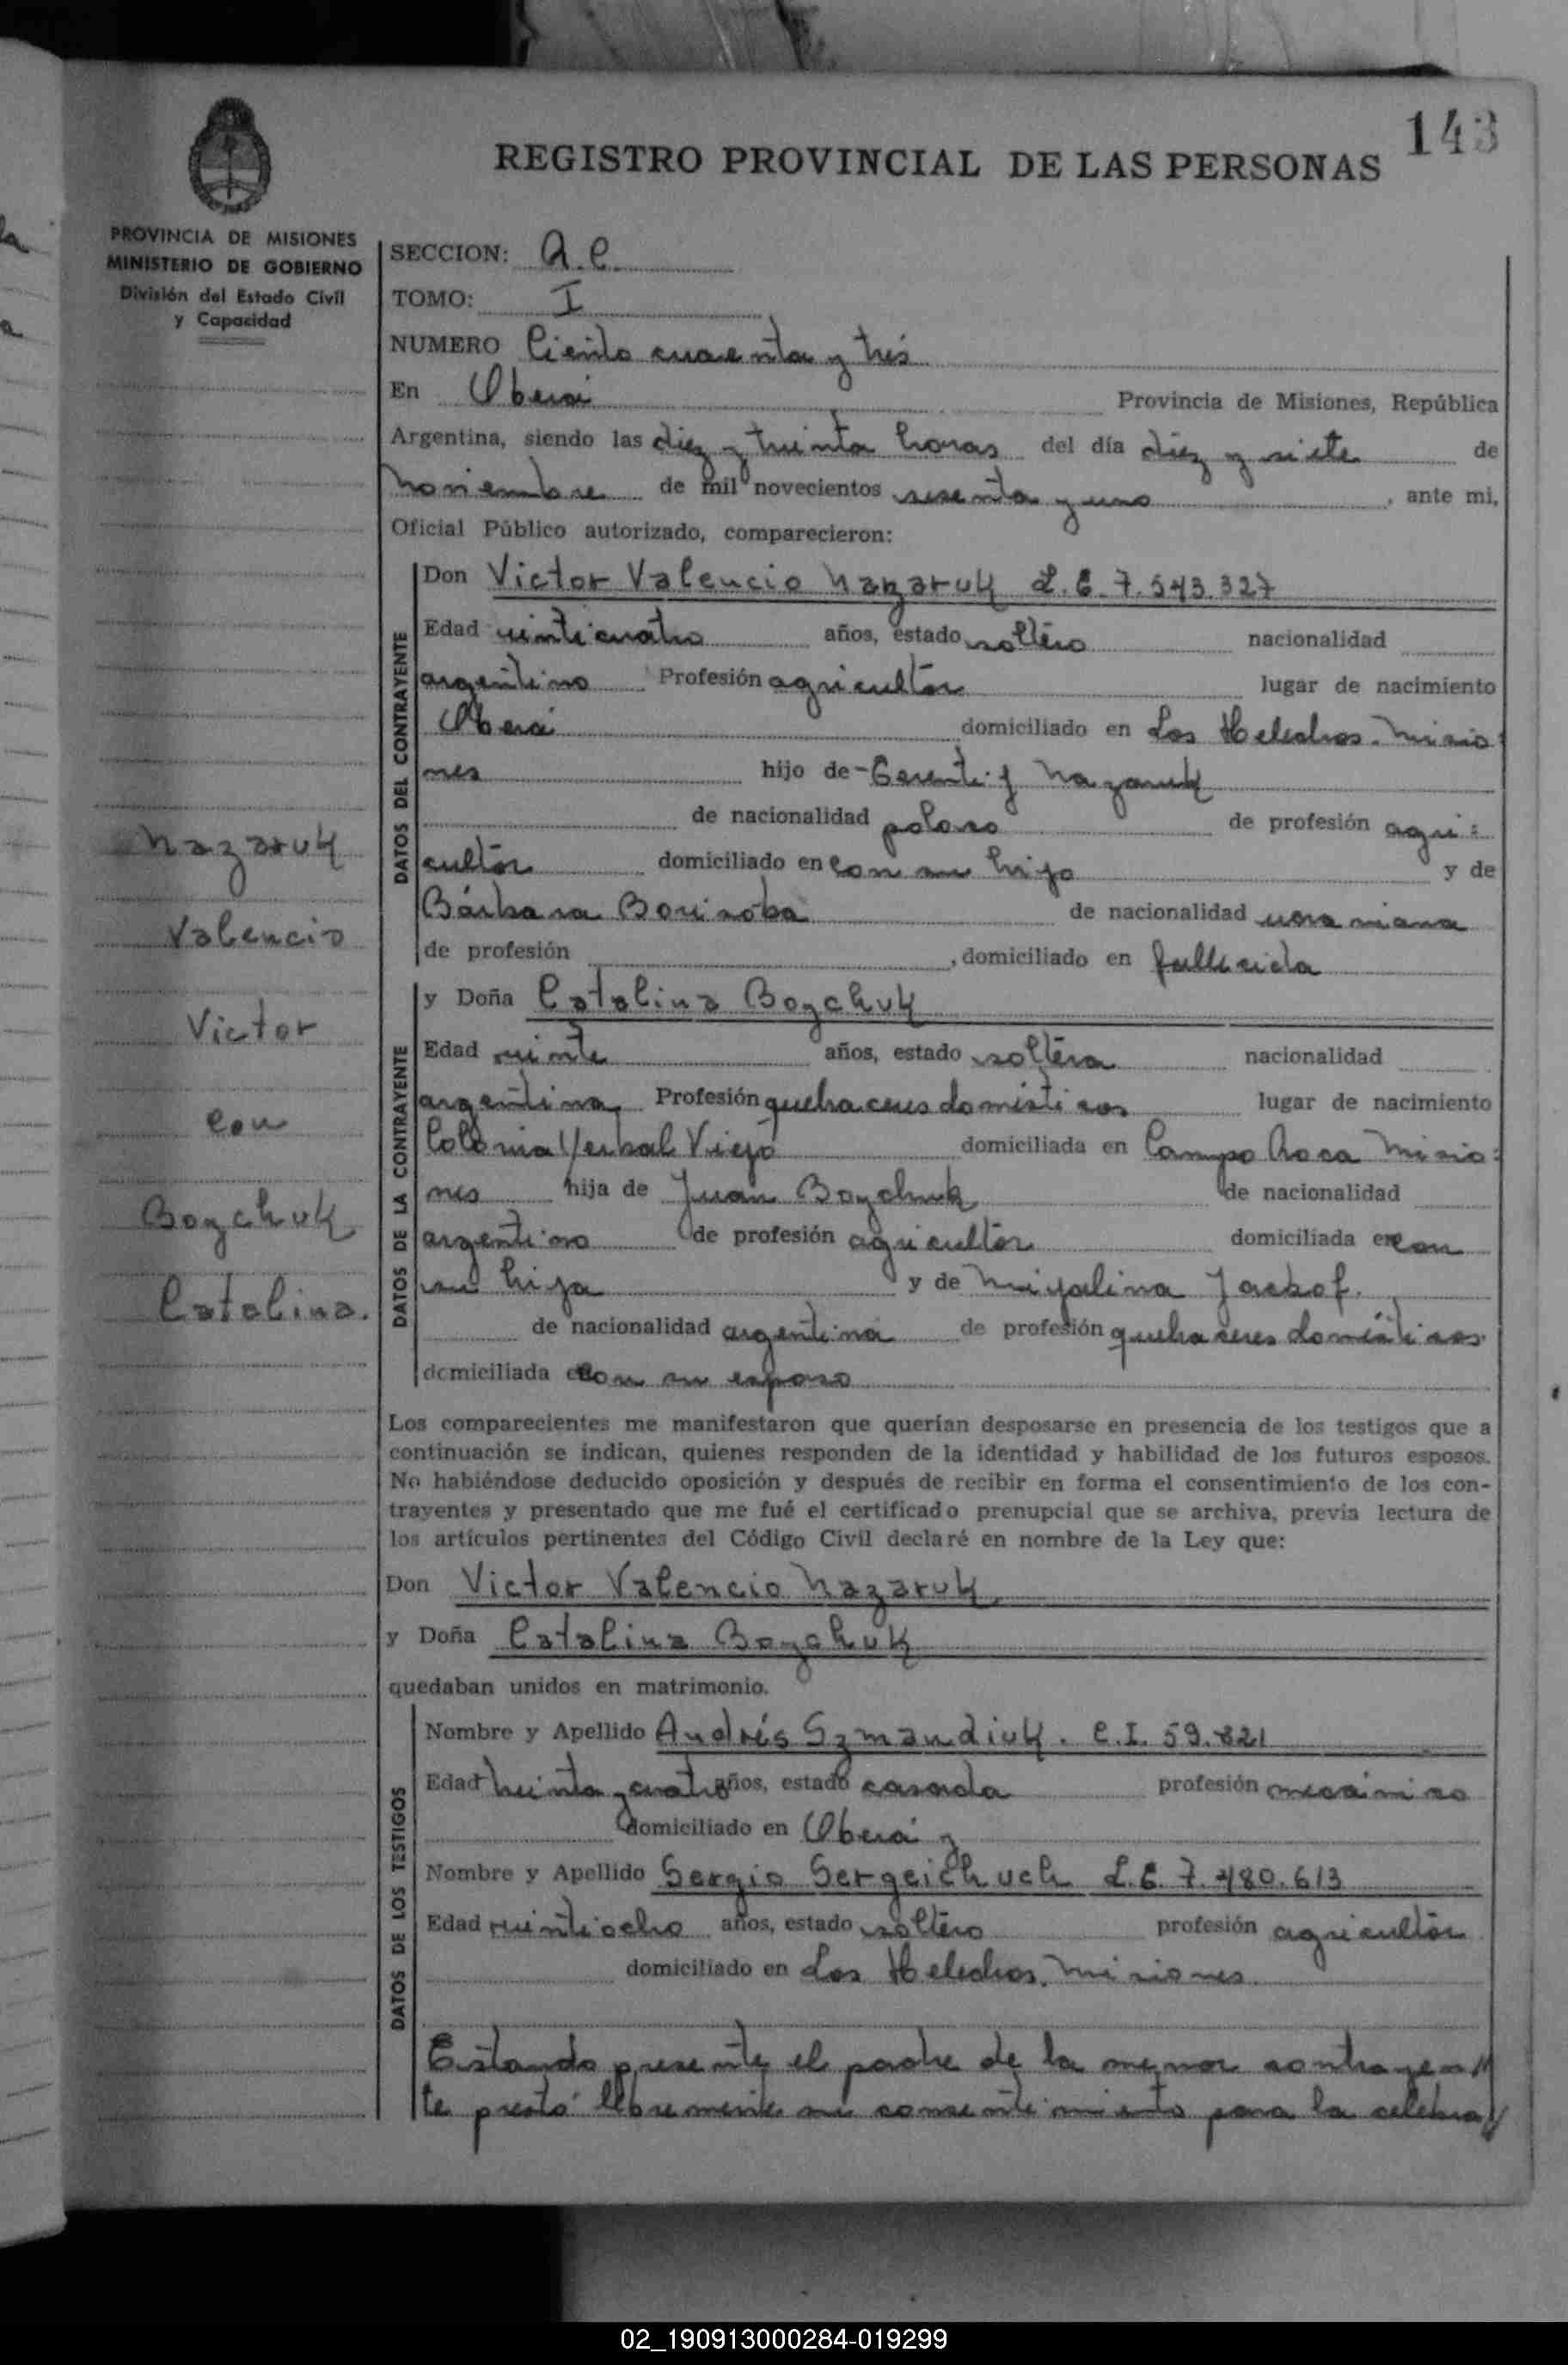 143
REGISTRO PROVINCIAL DE LAS PERSONAS
PROVINCIA DE MISIONES
MINISTERIO DE GOBIERNO
División del Estado Civil
y Capacidad
SECCION: A.C.
TOMO: I
NUMERO Ciento cuarenta y trés
En Oberá Provincia de Misiones, República
Argentina, siendo las diez y treinta horas del día diez y siete de
noviembre de mil novecientos sesenta y uno, ante mi,
Oficial Público autorizado, comparecieron:
DATOS DEL CONTRAYENTE
Don Victor Valencio Nazaruk L.E. 7.543.327
Edad veinticuatro años, estado soltero nacionalidad
argentino Profesión agricultor lugar de nacimiento
Oberá domiciliado en Los Helechos. Misio:
nes hijo de Nazaruk
de nacionalidad polaco de profesión agri:
cultor domiciliado en con su hijo y de
Bárbara de nacionalidad ucraniana
de profesión , domiciliado en fallecida
DATOS DE LA CONTRAYENTE
y Doña Catalina Bozchuk
Edad veinte años, estado soltera nacionalidad
argentina, Profesión quehaceres domésticos lugar de nacimiento
Colonia Yerbal Viejo domiciliada en Campo Roca Misio:
nes hija de Juan Bozchuk de nacionalidad
argentino de profesión agricultor domiciliada en con
su hija y de Miyalina Jackof.
de nacionalidad argentina de profesión quehaceres domésticos
domiciliada en con su esposo
Nazaruk
Valencio
Victor
con
Bozchuk
Catalina.
Los comparecientes me manifestaron que querían desposarse en presencia de los testigos que a
continuación se indican, quienes responden de la identidad y habilidad de los futuros esposos.
No habiéndose deducido oposición y después de recibir en forma el consentimiento de los con-
trayentes y presentado que me fué el certificado prenupcial que se archiva, previa lectura de
los artículos pertinentes del Código Civil declaré en nombre de la Ley que:
Don Victor Valencio Nazaruk
y Doña Catalina Bozchuk
quedaban unidos en matrimonio.
DATOS DE LOS TESTIGOS
Nombre y Apellido Andrés Szmandiuk. C.I. 59.821
Edad treinta y cuatro años, estado casado profesión mecánico
domiciliado en Oberá y
Nombre y Apellido Sergio Sergeichuch L.E. 7.480.613
Edad veintiocho años, estado soltero profesión agricultor
domiciliado en Los Helechos. Misiones.
Estando presente el padre de la menor contrayen//
te prestó libremente su consentimiento para la celebra//
02_190913000284-019299